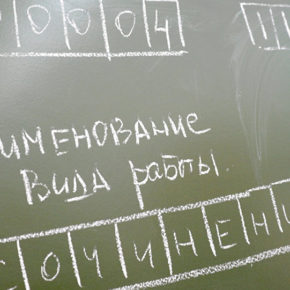 0004
именование
вида работы.
сочинени